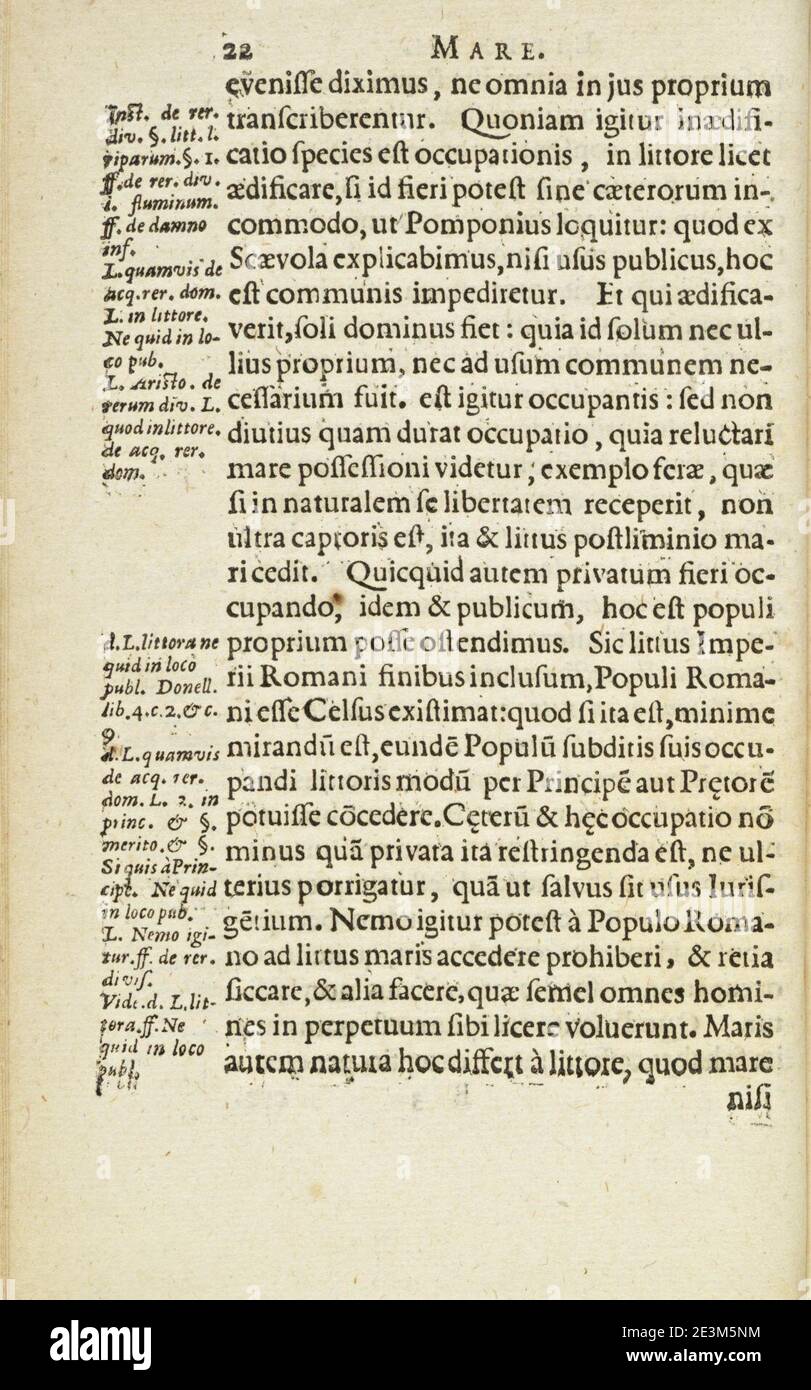 22 MARE.
evenisse diximus, ne omnia in jus proprium
transcriberentur. Quoniam igitur inædifi-
catio species est occupationis, in littore licet
ædificare, si id fieri potest sine cæterorum in-
commodo, ut Pomponius loquitur: quod ex
Scævola explicabimus, nisi usus publicus, hoc
est communis impediretur. Et qui ædifica-
verit, soli dominus fiet: quia id solum nec ul-
lius proprium, nec ad usum communem ne-
cessarium fuit. est igitur occupantis: sed non
diutius quam durat occupatio, quia reluctari
mare possessioni videtur, exemplo feræ, quæ
si in naturalem se libertatem receperit, non
ultra captoris est, ita & littus postliminio ma-
ri cedit. Quicquid autem privatum fieri oc-
cupando, idem & publicum, hoc est populi
proprium posse ostendimus. Sic littus Impe-
rii Romani finibus inclusum, Populi Roma-
ni esse Celsus existimat: quod si ita est, minime
mirandū est, eundē Populū subditis suis occu-
pandi littoris modū per Principē aut Prętorē
potuisse cōcedere. Cęterū & hęc occupatio nō
minus quā privata ita restringenda est, ne ul-
terius porrigatur, quā ut salvus sit usus Juris-
gētium. Nemo igitur potest à Populo Roma-
no ad littus maris accedere prohiberi, & retia
siccare, & alia facere, quæ semel omnes homi-
nes in perpetuum sibi licere voluerunt. Maris
autem natura hoc differt à littore, quod mare
nisi
Inst. de rer.
div. §. litt. l.
riparum. §. 1.
ff. de rer. div.
l. fluminum.
ff. de damno
inf.
L. quamvis de
acq. rer. dom.
L. in littore.
Ne quid in lo-
co pub.
L. Aristo. de
rerum div. L.
quod in littore.
de acq. rer.
dom.
d. L. littora ne
quid in loco
publ. Donell.
lib. 4. c. 2. & c.
9
d. L. quamvis
de acq. rer.
dom. L. 2. in
princ. & §.
merito. & §.
Si quis à Prin-
cipe. Ne quid
in loco pub.
L. Nemo igi-
tur. ff. de rer.
divis.
Vide. d. L. lit-
tora. ff. Ne
quid in loco
publ.
alamy
Image ID: 2E3M5NM
www.alamy.com